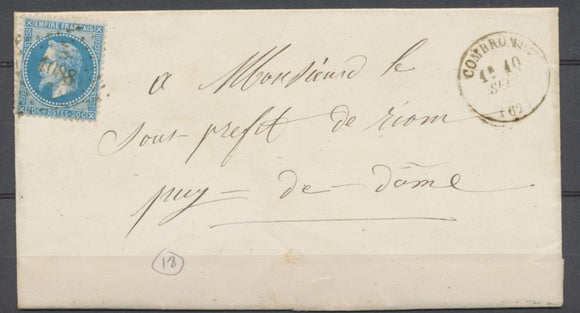 EMPIRE FRANÇAIS
1088
20 C POSTES 20 C
COMBRONDE
1E 10
SEPT
(62)
a Monsieurd le
sous-prefet de riom
puy-de-dôme
18